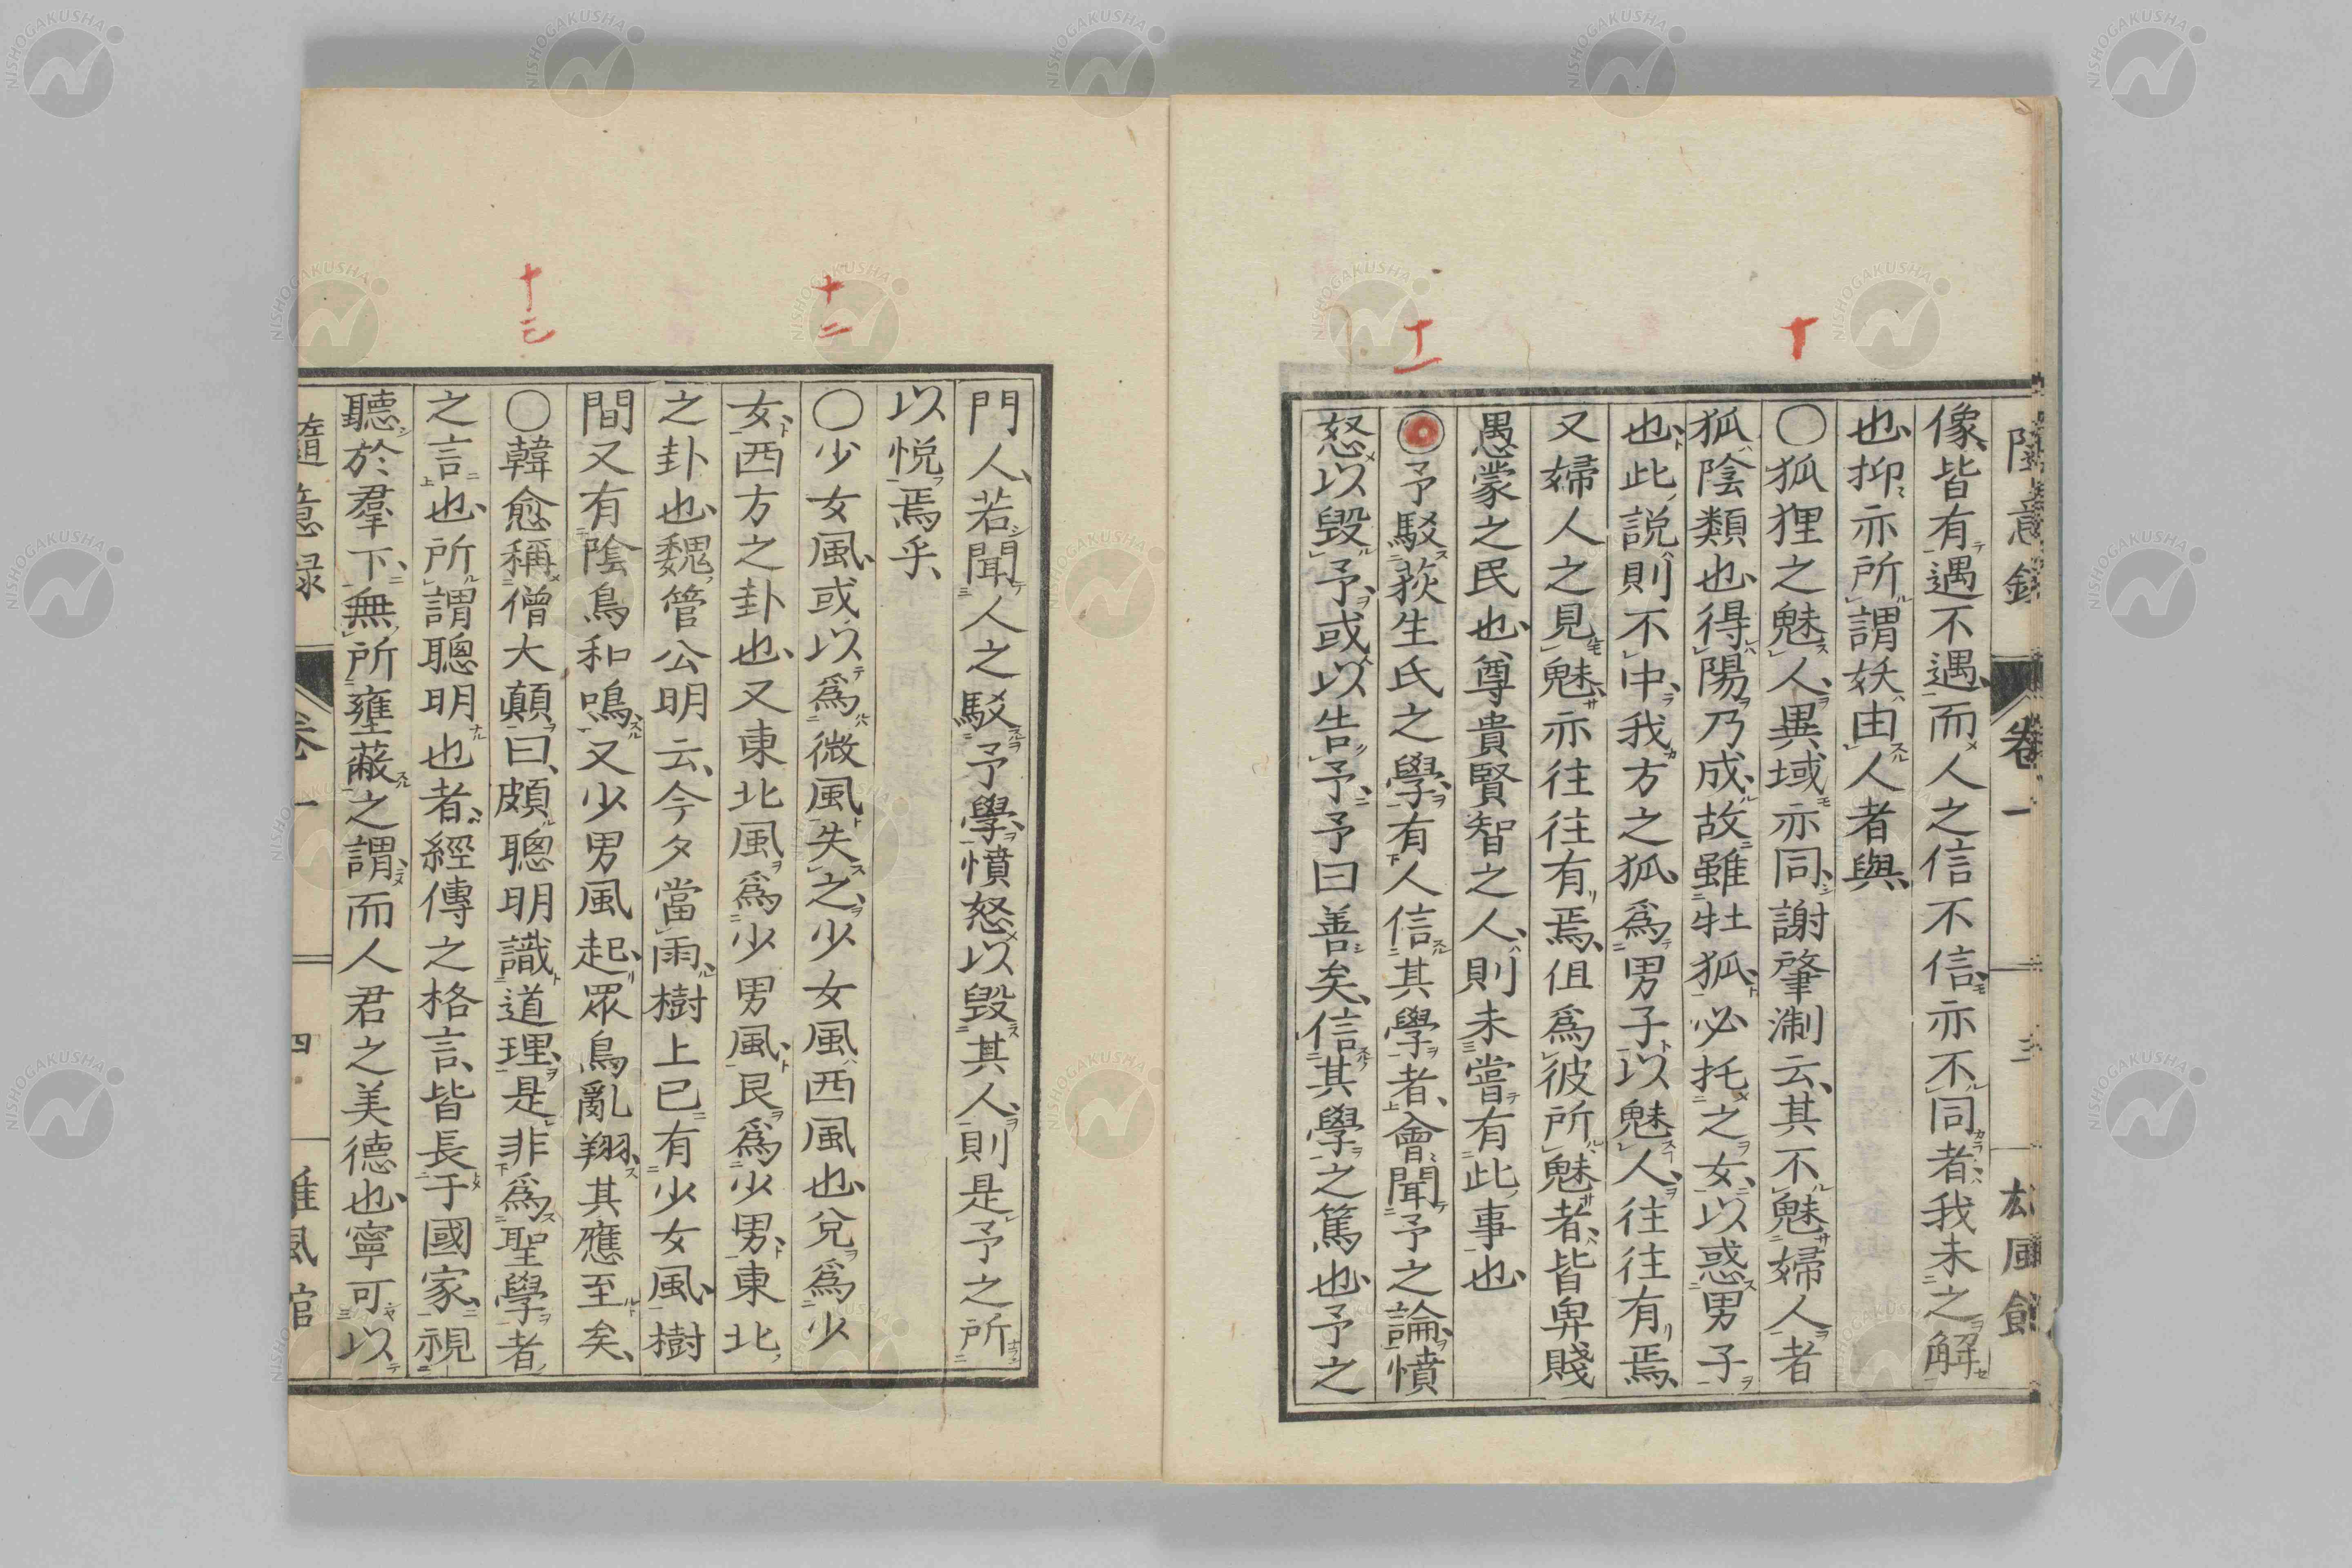 隨意録 卷一 三 雄風館
像、皆有遇不遇、而人之信不信、亦不同者、我未之解
也、抑亦所謂妖由人者與、
十
〇狐狸之魅人、異域亦同、謝肇淛云、其不魅婦人者
狐陰類也、得陽乃成、故雖牡狐、必托之女、以惑男子
也、此説則不中、我方之狐、爲男子以魅人、往往有焉、
又婦人之見魅、亦往往有焉、但爲彼所魅者、皆卑賤
愚蒙之民也、尊貴賢智之人、則未嘗有此事也
十一
〇予駁荻生氏之學、有人信其學者、會聞予之論、憤
怒以毀予、或以告予、予曰善矣、信其學之篤也、予之
門人、若聞人之駁予學、憤怒以毀其人、則是予之所
以悦焉乎、
十二
〇少女風、或以爲微風失之、少女風西風也、兌爲少
女、西方之卦也、又東北風爲少男風、艮爲少男、東北
之卦也、魏管公明云、今夕當雨、樹上已有少女風、樹
間又有陰鳥和鳴、又少男風起、眾鳥亂翔、其應至矣、
十三
〇韓愈稱僧大顛曰、頗聰明識道理、是非爲聖學者
之言也、所謂聰明也者、經傳之格言、皆長于國家、視
聽於羣下、無所壅蔽之謂、而人君之美德也、寧可以
隨意録 卷一 四 雄風館